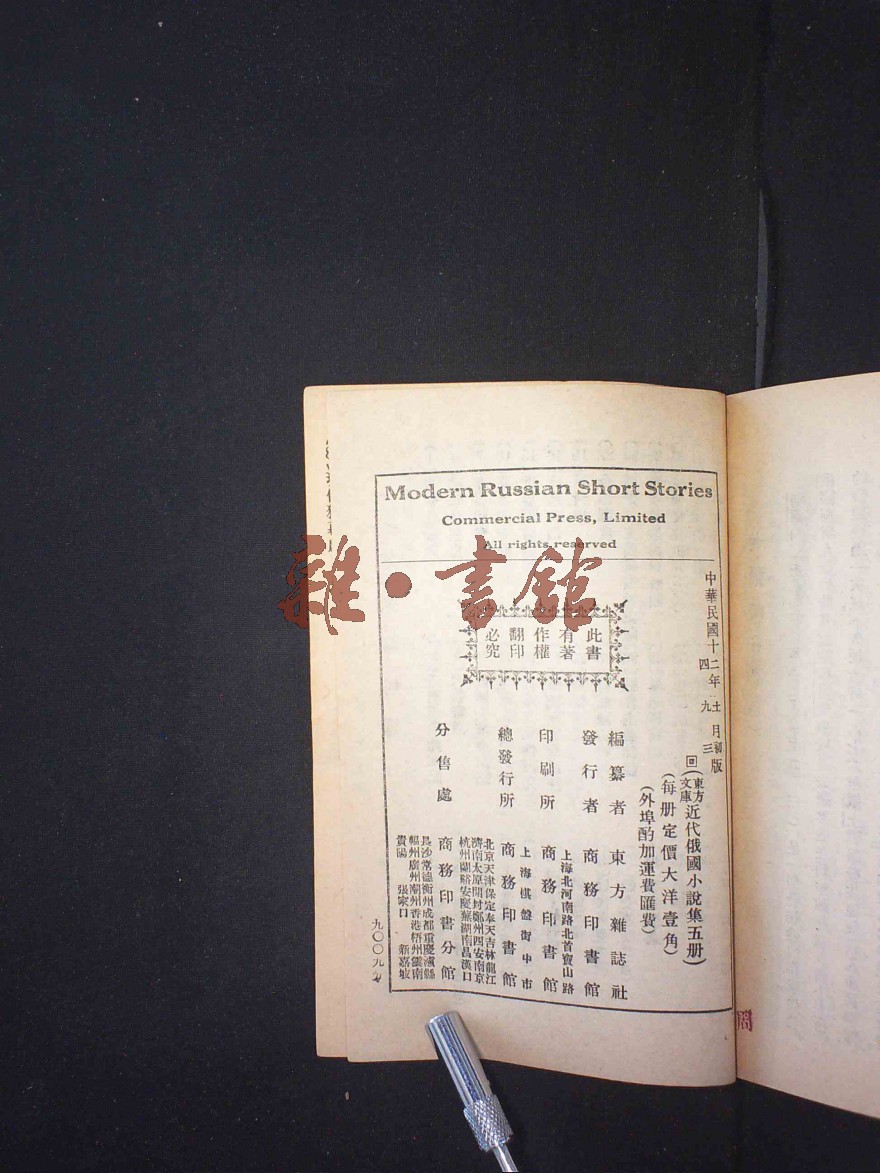 Modern Russian Short Stories
Commercial Press, Limited
All rights reserved
此書
有著
作權
翻印
必究
中華民國十二年十二月初版
四 九 三
回(東方文庫)近代俄國小說集五册)
(每册定價大洋壹角)
(外埠酌加運費匯費)
編纂者 東方雜誌社
發行者 商務印書館
上海北河南路北首寶山路
印刷所 商務印書館
上海棋盤街中市
總發行所 商務印書館
北京天津保定奉天吉林龍江
濟南太原開封鄭州西安南京
杭州蘭谿安慶蕪湖南昌漢口
分售處 商務印書分館
長沙常德衡州成都重慶瀘縣
福州廣州潮州香港梧州雲南
貴陽 張家口 新嘉坡
九〇〇九
雜·書館